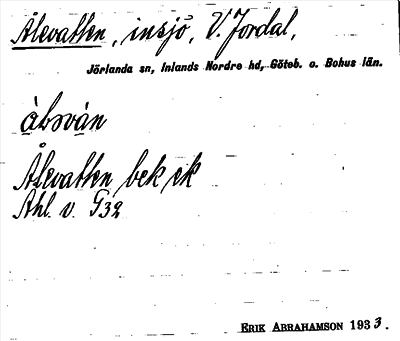 Ålevatten, insjö, V. Jordal,
Jörlanda sn, Inlands Nordre hd, Göteb. o. Bohus län.
àbsván
Ålevatten bek ek
Ahl. v. G32
ERIK ABRAHAMSON 1933.